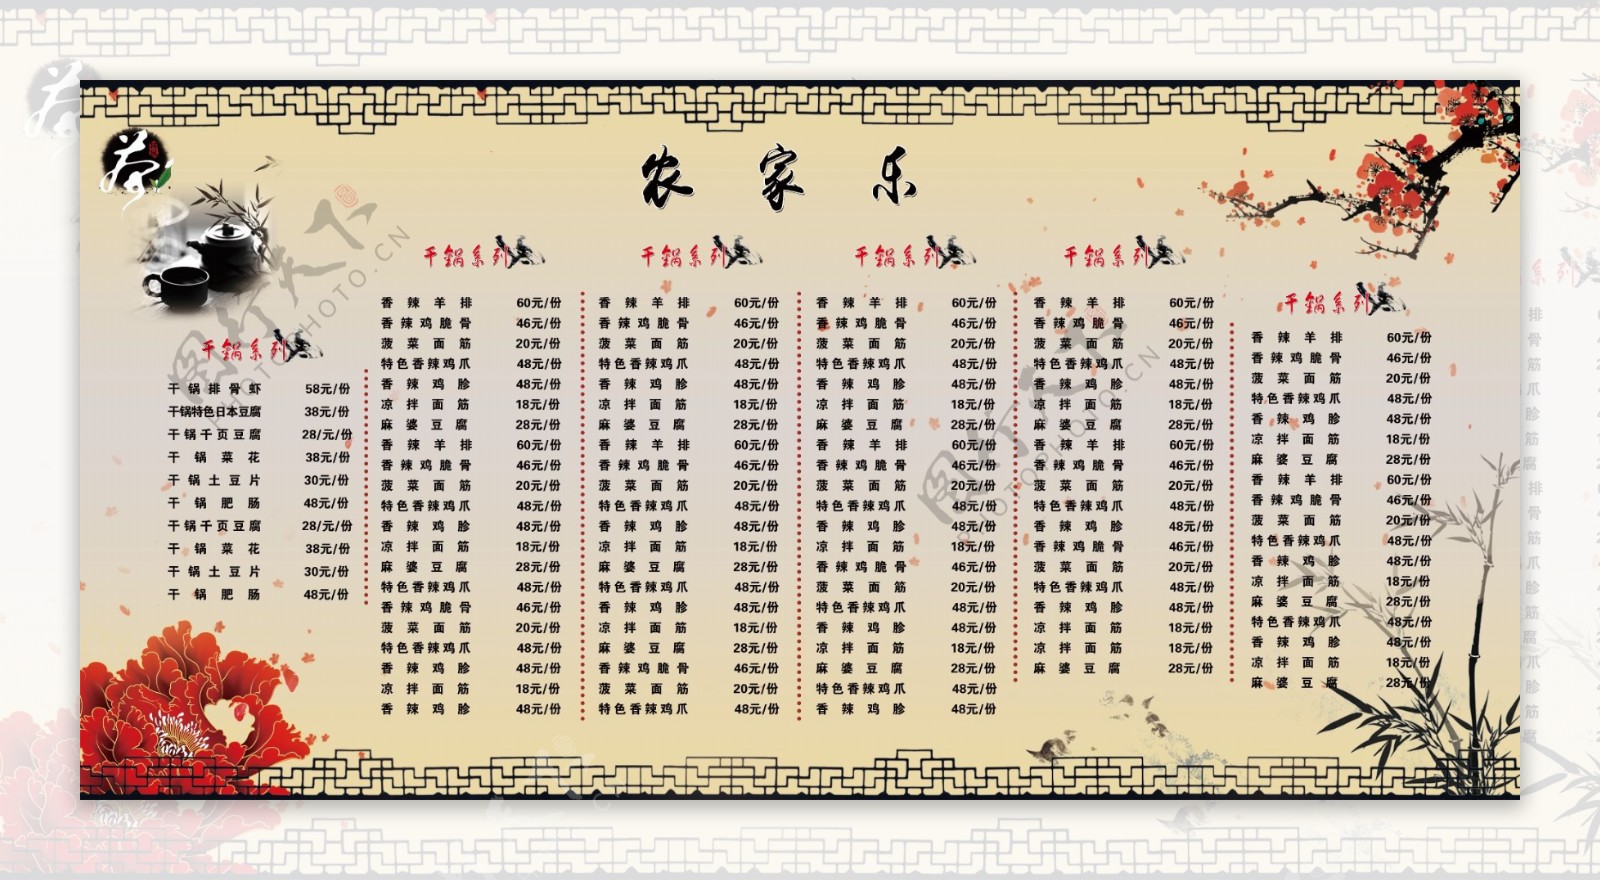 茶
农家乐
干锅系列
干锅排骨虾 58元/份
干锅特色日本豆腐 38元/份
干锅千页豆腐 28/元/份
干锅菜花 38元/份
干锅土豆片 30元/份
干锅肥肠 48元/份
干锅千页豆腐 28/元/份
干锅菜花 38元/份
干锅土豆片 30元/份
干锅肥肠 48元/份
干锅系列
香辣羊排 60元/份
香辣鸡脆骨 46元/份
菠菜面筋 20元/份
特色香辣鸡爪 48元/份
香辣鸡胗 48元/份
凉拌面筋 18元/份
麻婆豆腐 28元/份
香辣羊排 60元/份
香辣鸡脆骨 46元/份
菠菜面筋 20元/份
特色香辣鸡爪 48元/份
香辣鸡胗 48元/份
凉拌面筋 18元/份
麻婆豆腐 28元/份
特色香辣鸡爪 48元/份
香辣鸡脆骨 46元/份
菠菜面筋 20元/份
特色香辣鸡爪 48元/份
香辣鸡胗 48元/份
凉拌面筋 18元/份
香辣鸡胗 48元/份
干锅系列
香辣羊排 60元/份
香辣鸡脆骨 46元/份
菠菜面筋 20元/份
特色香辣鸡爪 48元/份
香辣鸡胗 48元/份
凉拌面筋 18元/份
麻婆豆腐 28元/份
香辣羊排 60元/份
香辣鸡脆骨 46元/份
菠菜面筋 20元/份
特色香辣鸡爪 48元/份
香辣鸡胗 48元/份
凉拌面筋 18元/份
麻婆豆腐 28元/份
特色香辣鸡爪 48元/份
香辣鸡胗 48元/份
凉拌面筋 18元/份
麻婆豆腐 28元/份
香辣鸡脆骨 46元/份
菠菜面筋 20元/份
特色香辣鸡爪 48元/份
干锅系列
香辣羊排 60元/份
香辣鸡脆骨 46元/份
菠菜面筋 20元/份
特色香辣鸡爪 48元/份
香辣鸡胗 48元/份
凉拌面筋 18元/份
麻婆豆腐 28元/份
香辣羊排 60元/份
香辣鸡脆骨 46元/份
菠菜面筋 20元/份
特色香辣鸡爪 48元/份
香辣鸡胗 48元/份
凉拌面筋 18元/份
香辣鸡脆骨 46元/份
菠菜面筋 20元/份
特色香辣鸡爪 48元/份
香辣鸡胗 48元/份
凉拌面筋 18元/份
麻婆豆腐 28元/份
特色香辣鸡爪 48元/份
香辣鸡胗 48元/份
干锅系列
香辣羊排 60元/份
香辣鸡脆骨 46元/份
菠菜面筋 20元/份
特色香辣鸡爪 48元/份
香辣鸡胗 48元/份
凉拌面筋 18元/份
麻婆豆腐 28元/份
香辣羊排 60元/份
香辣鸡脆骨 46元/份
菠菜面筋 20元/份
特色香辣鸡爪 48元/份
香辣鸡胗 48元/份
香辣鸡脆骨 46元/份
菠菜面筋 20元/份
特色香辣鸡爪 48元/份
香辣鸡胗 48元/份
凉拌面筋 18元/份
凉拌面筋 18元/份
麻婆豆腐 28元/份
干锅系列
香辣羊排 60元/份
香辣鸡脆骨 46元/份
菠菜面筋 20元/份
特色香辣鸡爪 48元/份
香辣鸡胗 48元/份
凉拌面筋 18元/份
麻婆豆腐 28元/份
香辣羊排 60元/份
香辣鸡脆骨 46元/份
菠菜面筋 20元/份
特色香辣鸡爪 48元/份
香辣鸡胗 48元/份
凉拌面筋 18元/份
麻婆豆腐 28元/份
特色香辣鸡爪 48元/份
香辣鸡胗 48元/份
凉拌面筋 18元/份
麻婆豆腐 28元/份
图行天下
PHOTOPHOTO.CN
图行天下
PHOTOPHOTO.CN